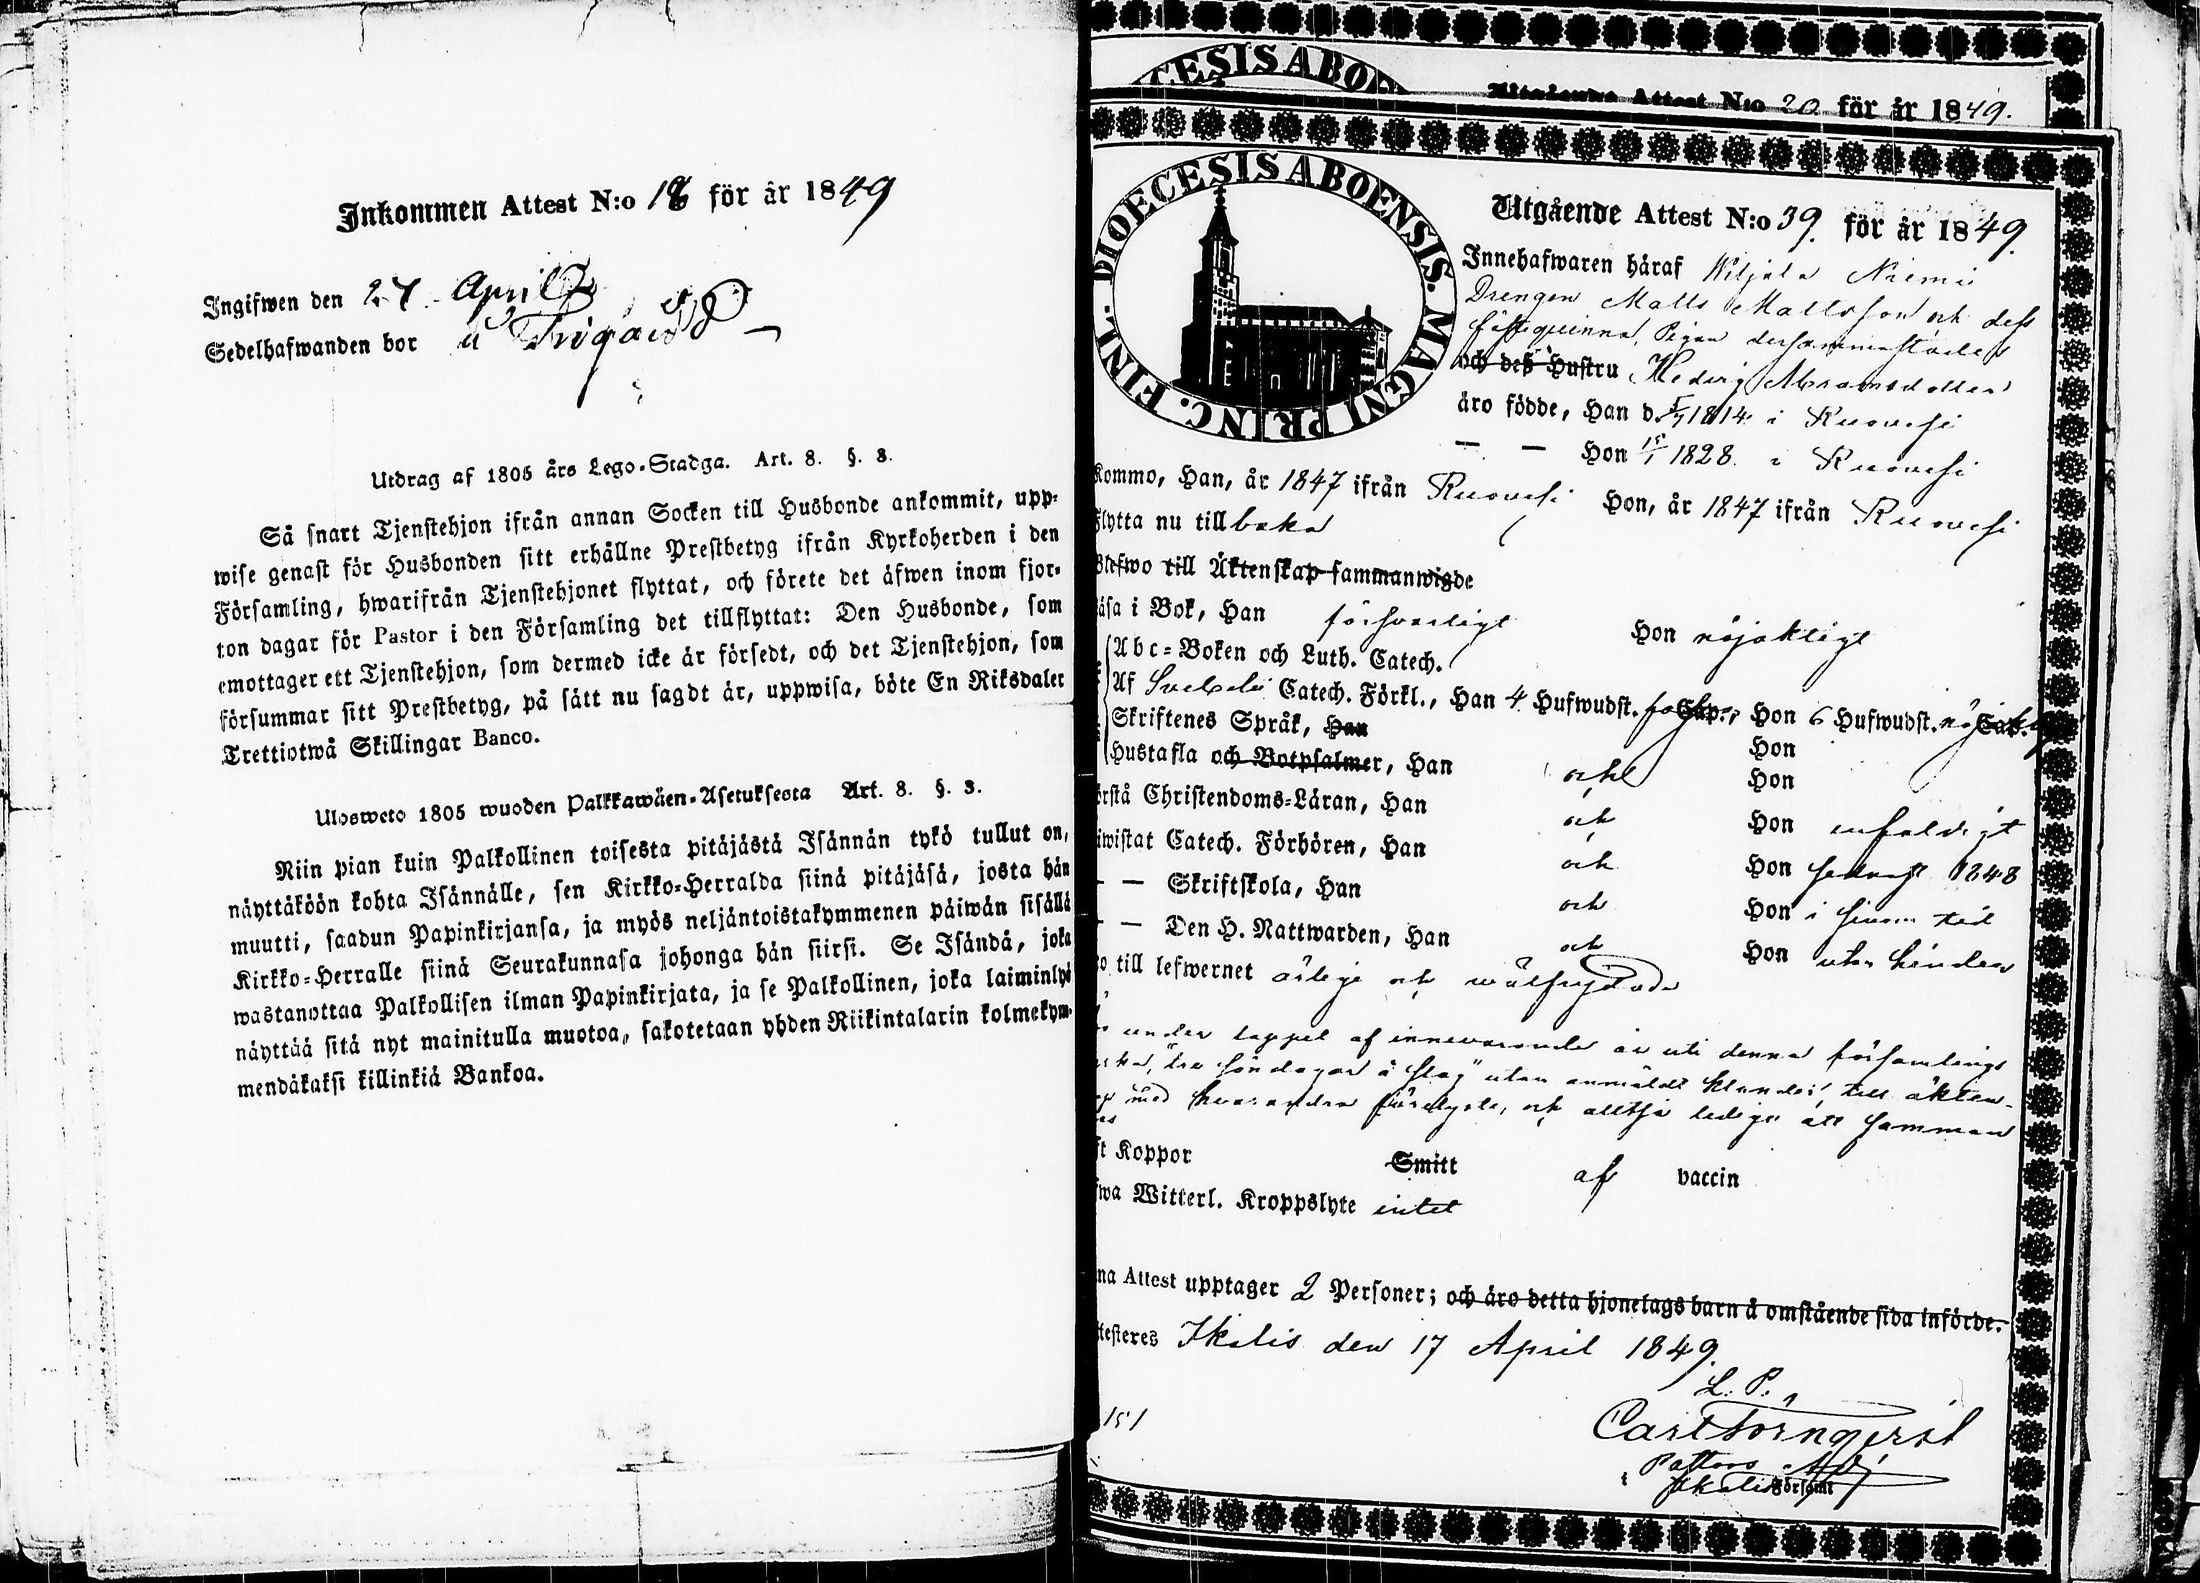 Inkommen Attest N:o 18 för år 1849
Ingifwen den 27 April
Sedelhafwanden bor
Utdrag af 1805 års Lego-Stadga. Art. 8. §. 3.
Så snart Tjenstehjon ifrån annan Socken till Husbonde ankommit, upp-
wise genast för Husbonden sitt erhållne Prestbetyg ifrån Kyrkoherden i den
Församling, hwarifrån Tjenstehjonet flyttat, och förete det äfwen inom fjor-
ton dagar för Pastor i den Församling det tillflyttat: Den Husbonde, som
emottager ett Tjenstehjon, som dermed icke är försedt, och det Tjenstehjon, som
försummar sitt Prestbetyg, på sätt nu sagdt är, uppwisa, böte En Riksdaler
Trettiotwå Skillingar Banco.
Ulosweto 1805 wuoden Palkkawäen-Asetuksesta Art. 8. §. 3.
Niin pian kuin Palkollinen toisesta pitäjästä Isännän tykö tullut on,
näyttäköön kohta Isännälle, sen Kirkko-Herralda siinä pitäjäsä, josta hän
muutti, saadun Papinkirjansa, ja myös neljäntoistakymmenen päiwän sisällä
Kirkko-Herralle siinä Seurakunnasa johonga hän siirsi. Se Isändä, joka
wastanottaa Palkollisen ilman Papinkirjata, ja se Palkollinen, joka laiminlyö
näyttää sitä nyt mainitulla muotoa, sakotetaan yhden Riikintalarin kolmekym-
mendäkaksi killinkiä Bankoa.
CESIS ABOE
Utgående Attest N:o 20 för år 1849.
DIOECESIS ABOENSIS. MAGNI PRINC. FINL.
Utgående Attest N:o 39. för år 1849.
Innehafwaren häraf Wiljala Niemi
Drengen Matts Mattsson och dess
fästeqvinna, Pigan dersammastädes
och dess Hustru Hedvig Abramsdotter
äro födde, Han d. 1814 i Ruovesi
— — Hon 15/1 1828 i Ruovesi
Kommo, Han, år 1847 ifrån Ruovesi Hon, år 1847 ifrån Ruovesi
Flytta nu tillbaka
Blefwo till Äktenskap sammanwigde
Läsa i Bok, Han försvarligt Hon nöjaktigt
Abc-Boken och Luth. Catech.
Af Svebelii Catech. Förkl., Han 4 Hufwudst. Cap., Hon 6 Hufwudst. Cap.
Skriftenes Språk, Han Hon
Hustafla och Botpsalmer, Han och Hon
örstå Christendoms-Läran, Han och Hon enfaldigt
iwistat Catech. Förhören, Han och Hon senast 1848
— — Skriftskola, Han och Hon i sinom tid
— — Den H. Nattwarden, Han och Hon utan hinder
o till lefwernet ärlige och wälfrejdade
under loppet af innevarande år uti denna församlings
tre söndagar å slag utan anmäldt klander, till äkten-
med hvarandra förelyste, och alltså ledige att samman
ft Koppor Smitt af vaccin
fwa Witterl. Kroppslyte intet
na Attest upptager 2 Personer; och äro detta hjonelags barn å omstående sida införde.
ttesteres Ikalis den 17 April 1849.
L. P.
Carl Törnqvist
Pastors Adj.
i Ikalis Församl
151